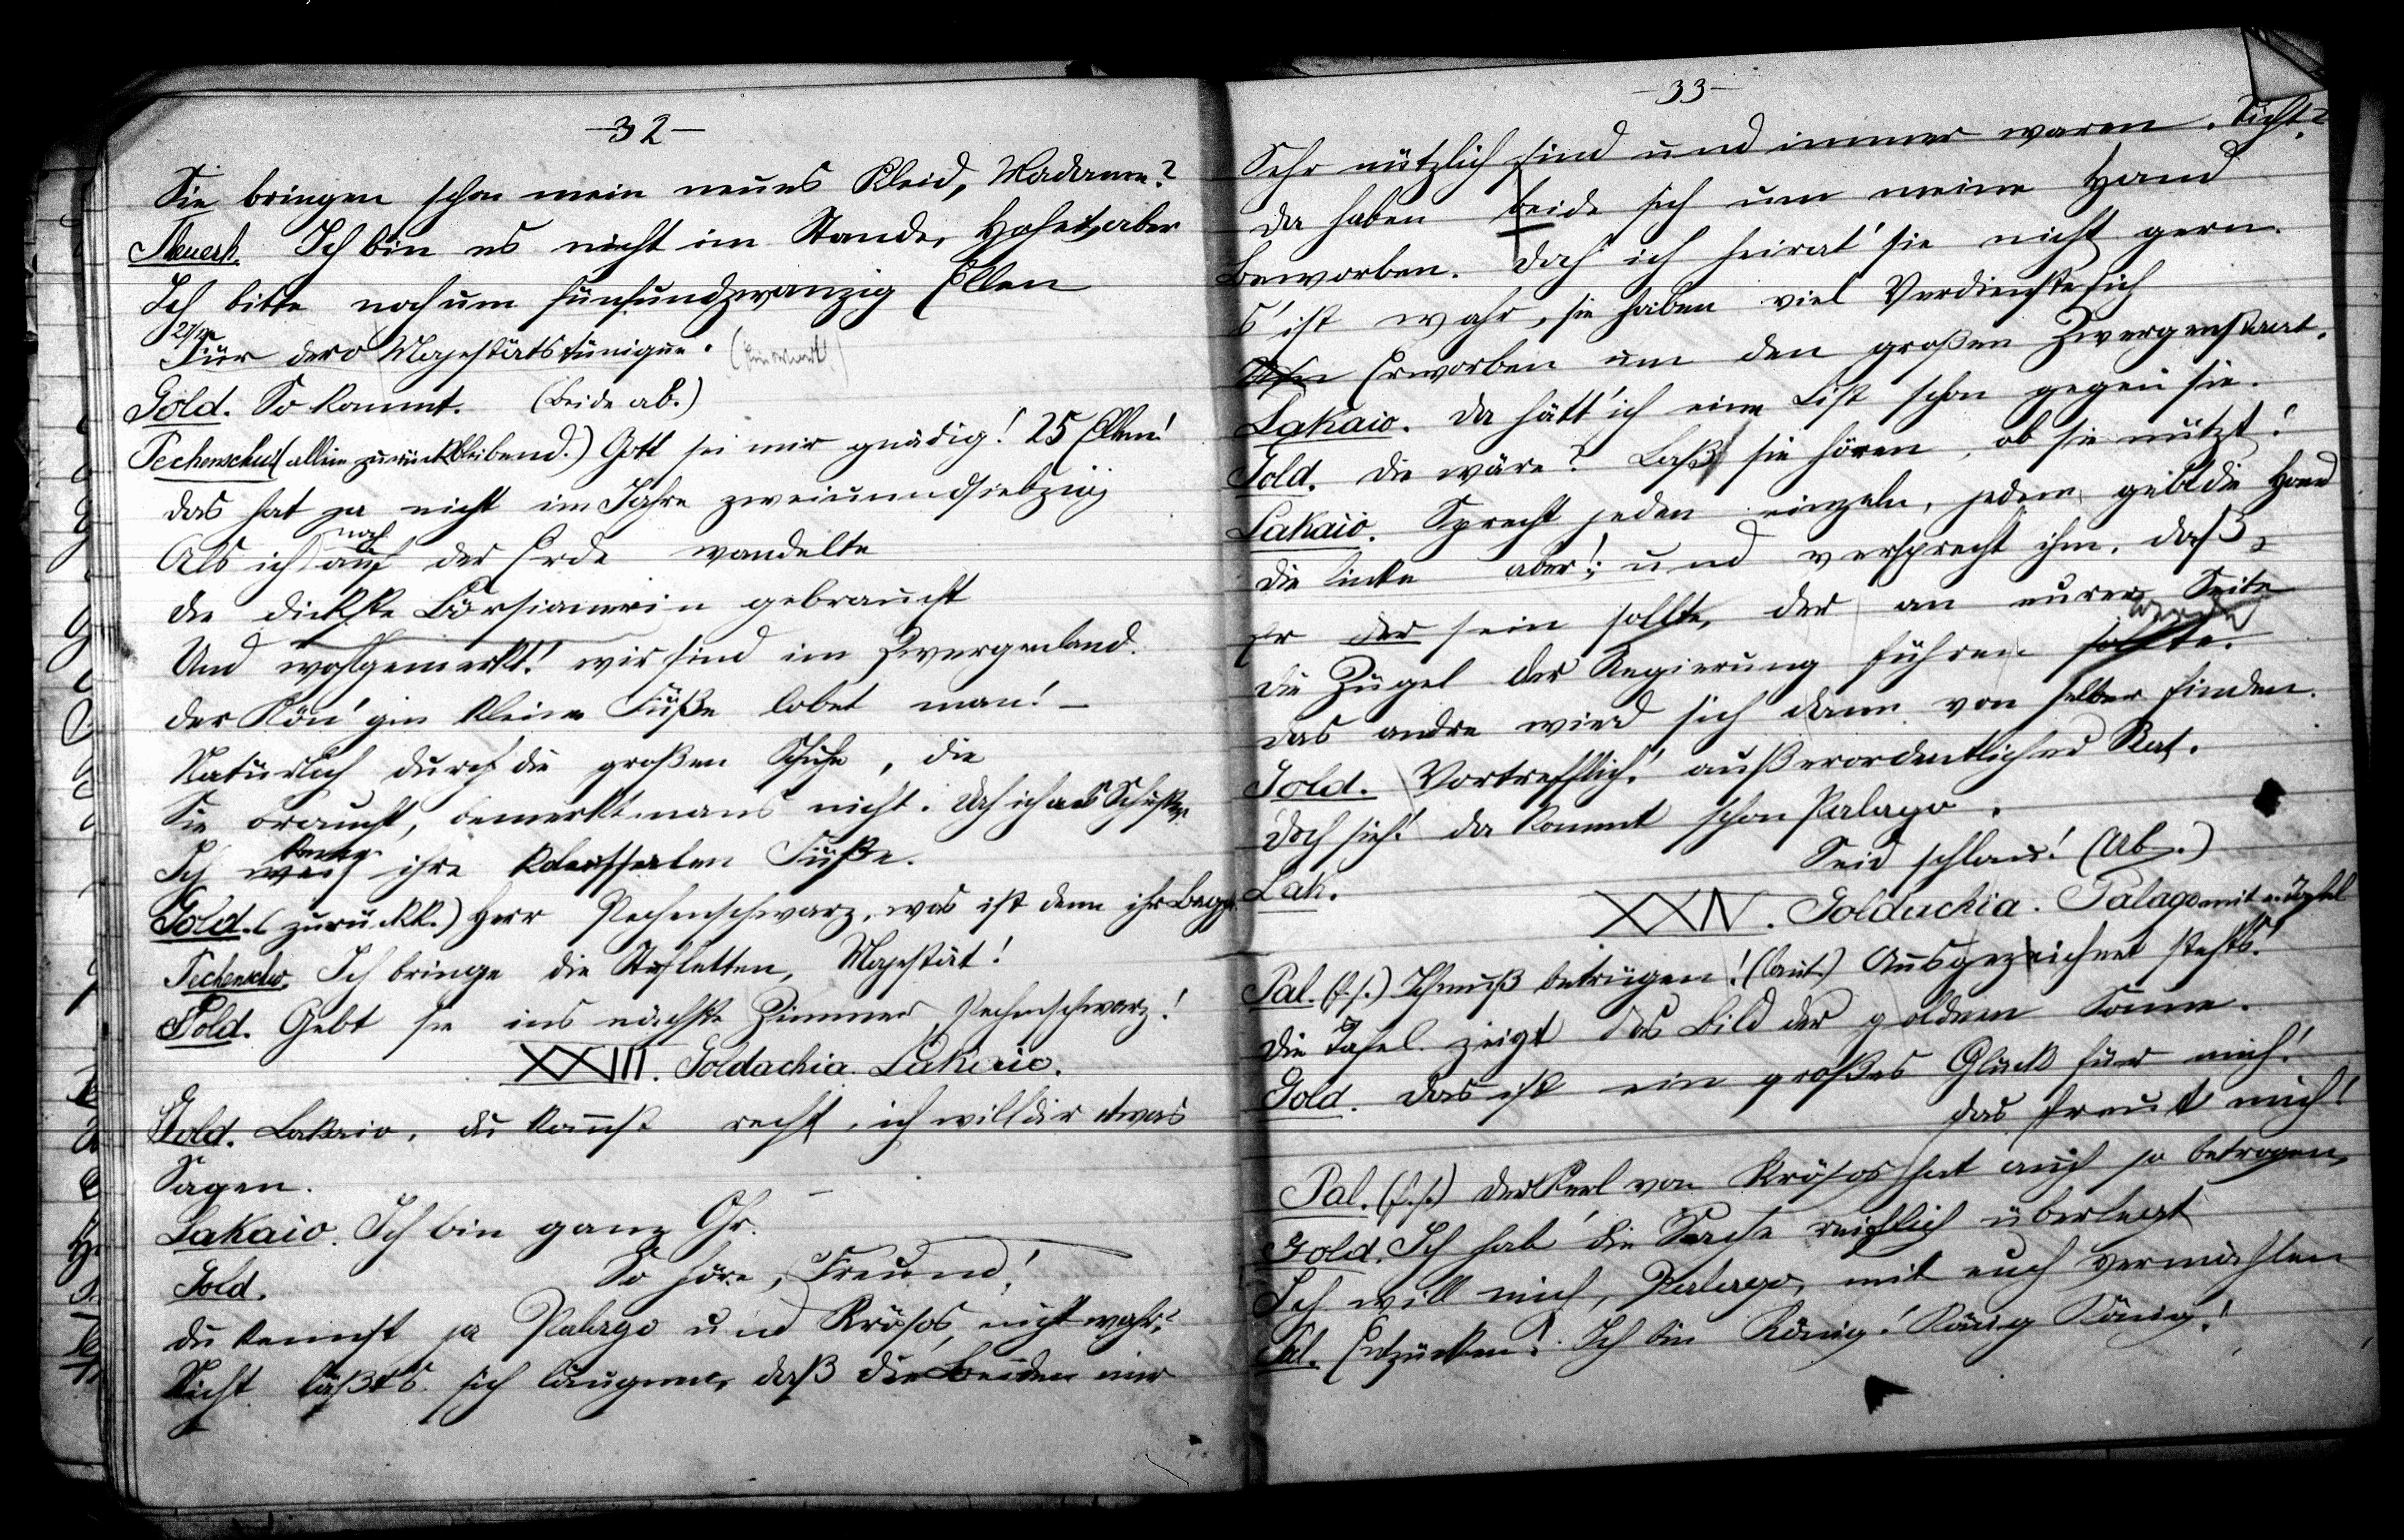 -32-
Sie bringen schon mein neues Kleid, Madame?
Ich bin es nicht im Stande, Hoheit, aber
Ich bitte noch um fünfundzwanzig Ellen
Für dero Majestätstünique.
Gold. So kommt. (Beide ab.)
Pechenschw. (allein zurückbleibend.) Gott sei mir gnädig! 25 Ellen!
Das hat ja nicht im Jahre zweiundsiebzig
Als ich noch auf der Erde wandelte
Die dickste Börsianerin gebraucht
Und wohlgemerkt! wir sind im Zwergenland.
Der Kön'gin kleine Füße lobet man! –
Natürlich durch die großen Schuhe, die
Sie braucht, bemerkt mans nicht. Ach ich als Schuster
Ich kenne ihre kolossalen Füße.
Gold. (zurückk.) Herr Pechenschwarz, was ist denn ihr Begehr
Pechenschw. Ich bringe die Stifletten, Majestät!
Gold. Gebt sie ins nächste Zimmer, Pechenschwarz!
XXIII. Goldachia. Lakaio.
Gold. Lakaio, du kommst recht, ich will dir etwas
Sagen.
Lakaio. Ich bin ganz Ohr. –
Gold. So höre, Freund!
Du kennst ja Palago und Krösos, nicht wahr?
Nicht läßt's sich läugnen, daß die Beiden mir
-33-
Sehr nützlich sind und immer waren. Sieh'?
Da haben beide sich um meine Hand
Beworben. Doch ich heirat' sie nicht gern.
S' ist wahr, sie haben viel Verdienste sich
Erworben um den großen Zwergenstaat.
Lakaio. Da hätt' ich eine List schon gegen sie.
Gold. Die wäre? Laß sie hören, ob sie nützt!
Lakaio. Sprecht jeden einzeln, jedem gebt die Hand
Die linke aber! und versprecht ihm, daß
Er der sein sollte, der an eurer Seite
Die Zügel der Regierung führen werde.
Das andre wird sich dann von selber finden.
Gold. Vortrefflich! außerordentlicher Rat.
Doch sieh! da kommt schon Palago.
Lak. Seid schlau! (Ab.)
XXIV. Goldachia. Palago mit e. Tafel
Pal. (f. s.) Ich muß betrügen! (laut) Ausgezeichnet steht's!
Die Tafel zeigt das Bild der goldnen Sonne.
Gold. Das ist ein großes Glück für mich!
Das freut mich!
Pal. (f. s.) Der Kerl von Krösos hat auch so betrogen,
Gold. Ich hab' die Sache reichlich überlegt
Ich will mich, Palago, mit euch vermählen
Pal. Entzücken! Ich bin König! König König!